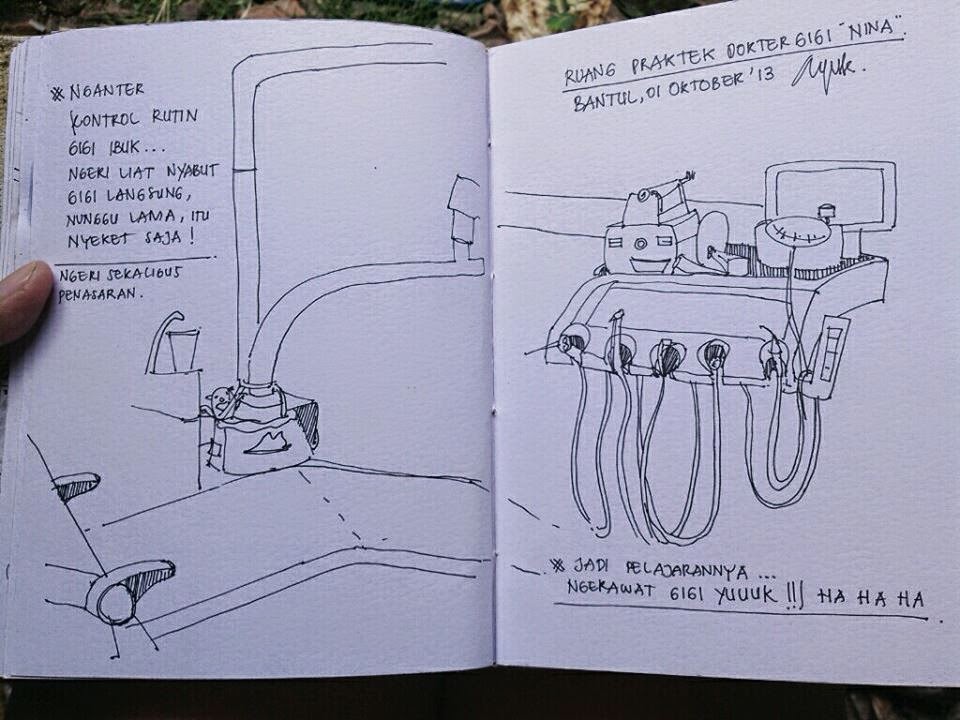 ※ NGANTER
KONTROL RUTIN
GIGI IBUK...
NGERI LIAT NYABUT
GIGI LANGSUNG,
NUNGGU LAMA, ITU
NYEKET SAJA !
NGERI SEKALIGUS
PENASARAN.
RUANG PRAKTEK DOKTER GIGI "NINA".
BANTUL, 01 OKTOBER '13
※ JADI PELAJARANNYA ...
NGERAWAT GIGI YUUUK !!! HA HA HA